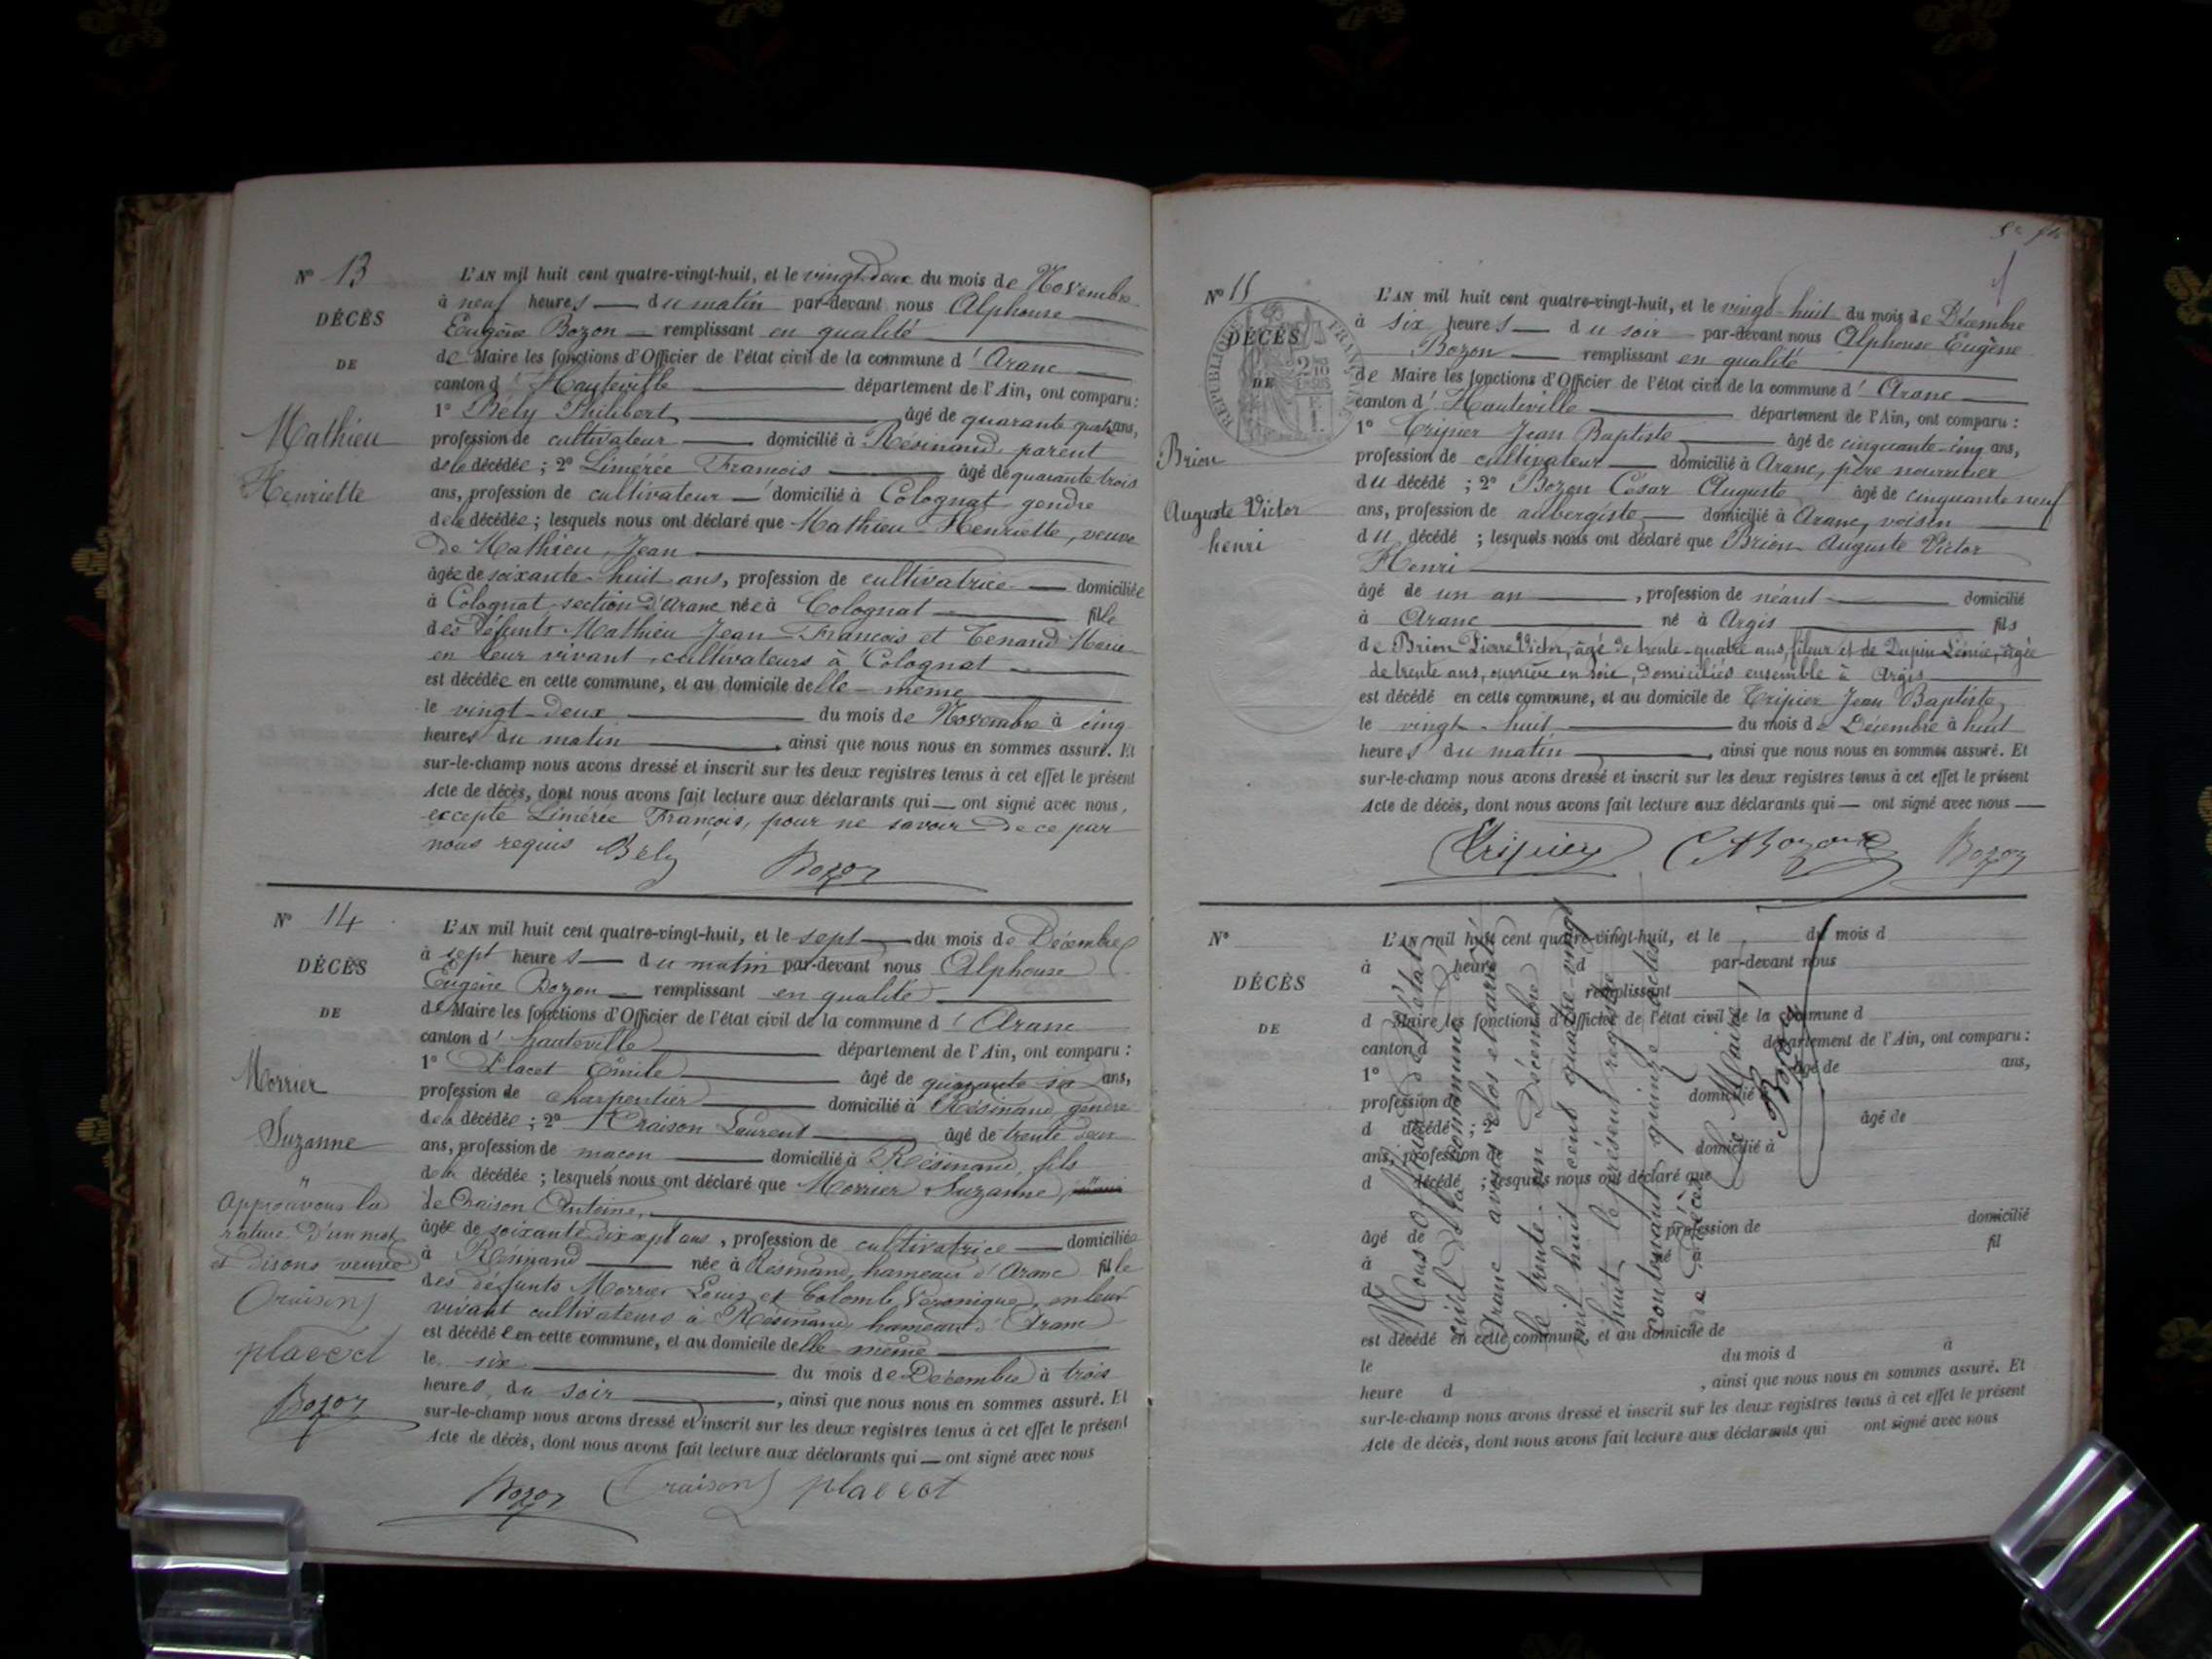 N° 13
DÉCÈS
DE
Mathieu
Henriette
L'AN mil huit cent quatre-vingt-huit, et le vingt-deux du mois de Novembre
à neuf heures du matin par-devant nous Alphonse
Eugène Bozon remplissant en qualité
de Maire les fonctions d'Officier de l'état civil de la commune d'Aranc
canton d'Hauteville département de l'Ain, ont comparu :
1° Bély Philibert âgé de quarante quatre ans,
profession de cultivateur domicilié à Résinand, parent
de la décédée ; 2° Limérée François âgé de quarante trois
ans, profession de cultivateur domicilié à Colognat gendre
de la décédée ; lesquels nous ont déclaré que Mathieu Henriette, veuve
de Mathieu Jean
âgée de soixante-huit ans, profession de cultivatrice domiciliée
à Colognat section d'Aranc née à Colognat fille
des défunts Mathieu Jean François et Tenand Marie
en leur vivant, cultivateurs à Colognat
est décédée en cette commune, et au domicile d'elle-même
le vingt-deux du mois de Novembre à cinq
heures du matin, ainsi que nous nous en sommes assuré. Et
sur-le-champ nous avons dressé et inscrit sur les deux registres tenus à cet effet le présent
Acte de décès, dont nous avons fait lecture aux déclarants qui ont signé avec nous,
excepté Limérée François, pour ne savoir de ce par
nous requis Bely Bozon
N° 14
DÉCÈS
DE
Morrier
Suzanne
Approuvons la
rature d'un mot
et disons veuve
Craison
placet
Bozon
L'AN mil huit cent quatre-vingt-huit, et le sept du mois de Décembre
à sept heures du matin par-devant nous Alphonse
Eugène Bozon remplissant en qualité
de Maire les fonctions d'Officier de l'état civil de la commune d'Aranc
canton d'hauteville département de l'Ain, ont comparu :
1° Placet Emile âgé de quarante six ans,
profession de charpentier domicilié à Résinand, gendre
de la décédée ; 2° Craison Laurent âgé de trente deux
ans, profession de maçon domicilié à Résinand, fils
de la décédée ; lesquels nous ont déclaré que Morrier Suzanne,
de Craison Antoine,
âgée de soixante dix sept ans, profession de cultivatrice domiciliée
à Résinand née à Résinand, hameau d'Aranc fille
des défunts Morrier Louis et Colomb Véronique, en leur
vivant cultivateurs à Résinand hameau d'Aranc
est décédée en cette commune, et au domicile d'elle même
le six du mois de Décembre à trois
heures du soir, ainsi que nous nous en sommes assuré. Et
sur-le-champ nous avons dressé et inscrit sur les deux registres tenus à cet effet le présent
Acte de décès, dont nous avons fait lecture aux déclarants qui ont signé avec nous
Bozon Craison placet
N° 15
DÉCÈS
DE
RÉPUBLIQUE FRANÇAISE
Brion
Auguste Victor
henri
L'AN mil huit cent quatre-vingt-huit, et le vingt-huit du mois de Décembre
à six heures du soir par-devant nous Alphonse Eugène
Bozon remplissant en qualité
de Maire les fonctions d'Officier de l'état civil de la commune d'Aranc
canton d'Hauteville département de l'Ain, ont comparu :
1° Tripier Jean Baptiste âgé de cinquante-cinq ans,
profession de cultivateur domicilié à Aranc, père nourricier
du décédé ; 2° Bozon César Auguste âgé de cinquante neuf
ans, profession de aubergiste domicilié à Aranc, voisin
du décédé ; lesquels nous ont déclaré que Brion Auguste Victor
Henri
âgé de un an, profession de néant domicilié
à Aranc né à Argis fils
de Brion Pierre Victor, âgé de trente-quatre ans, fileur et de Dupin Lénie, âgée
de trente ans, ouvrière en soie, domiciliés ensemble à Argis
est décédé en cette commune, et au domicile de Tripier Jean Baptiste
le vingt-huit du mois de Décembre à huit
heures du matin, ainsi que nous nous en sommes assuré. Et
sur-le-champ nous avons dressé et inscrit sur les deux registres tenus à cet effet le présent
Acte de décès, dont nous avons fait lecture aux déclarants qui ont signé avec nous
Tripier CABozon Bozon
N°
DÉCÈS
DE
L'AN mil huit cent quatre-vingt-huit, et le du mois d
à heure d par-devant nous
remplissant
d Maire les fonctions d'Officier de l'état civil de la commune d
canton d département de l'Ain, ont comparu :
1° âgé de ans,
profession de domicilié à
d décédé ; 2° âgé de
ans, profession de domicilié à
d décédé ; lesquels nous ont déclaré que
âgé de profession de domicilié
à né à fil
d
est décédé en cette commune, et au domicile de
le du mois d à
heure d , ainsi que nous nous en sommes assuré. Et
sur-le-champ nous avons dressé et inscrit sur les deux registres tenus à cet effet le présent
Acte de décès, dont nous avons fait lecture aux déclarants qui ont signé avec nous
Nous officier de l'état
civil de la commune
d'Aranc avons clos et arrêté
le trente-un Décembre
mil huit cent quatre-vingt
huit le présent registre
contenant quinze actes
de Décès
Le Maire
Bozon